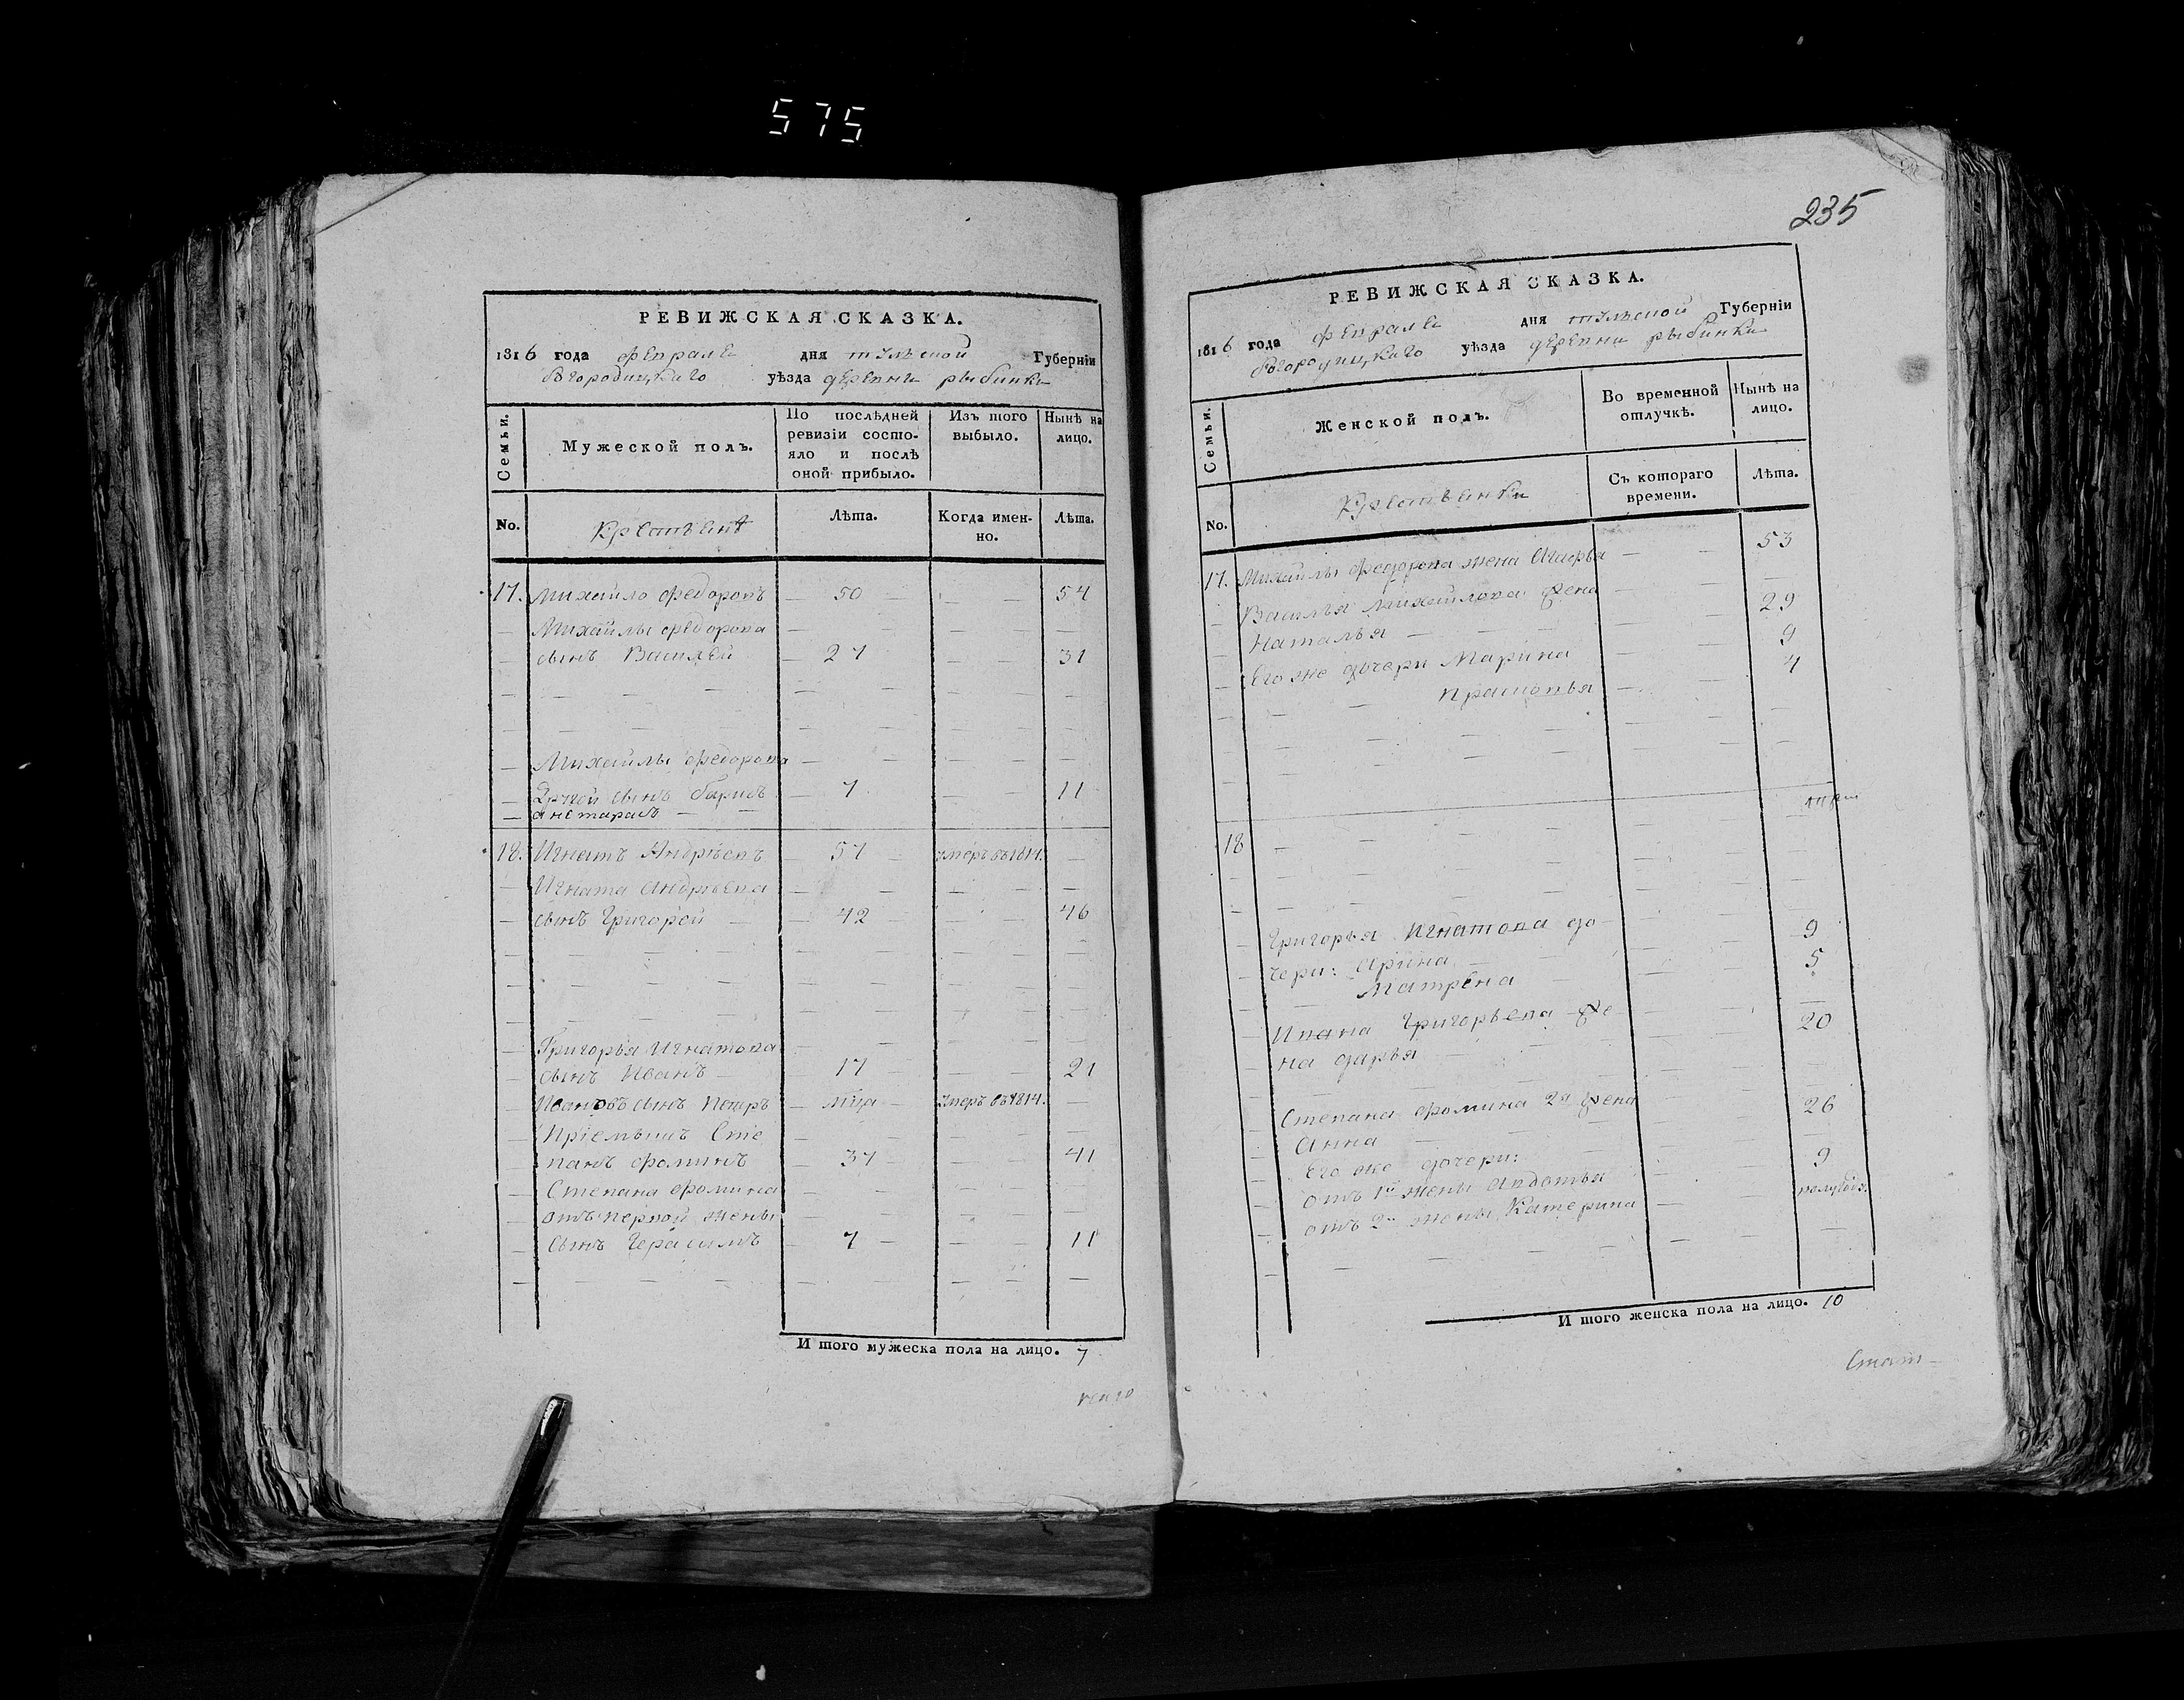 575
РЕВИЖСКАЯ СКАЗКА.
1816 года февраля дня тульской Губернiи
богородицкаго уѣзда деревни рыбинки
Семьи.
Мужеской полъ.
По послѣдней ревизiи состояло и послѣ оной прибыло.
Изъ того выбыло.
Нынѣ на лицо.
No.
Крестьянѣ
Лѣта.
Когда именно.
Лѣта.
17. Михайло федоровъ — 50 — — — 54
Михайлы федорова
сынъ Василей — 27 — — 31
Михайлы федорова
Другой сынъ — 7 — — 11
18. Игнатъ Андрѣевъ — 57 — умеръ въ 1814.
Игната Андрѣева
сынъ Григорей — 42 — — 46
Григорья Игнатова
сынъ Иванъ — 17 — — 21
Ивановъ сынъ Петръ — умеръ въ 1814.
Прiемышъ Сте
панъ фоминъ — 37 — — 41
Степана фомина
отъ первой жены
сынъ Герасимъ — 7 — — 11
И того мужеска пола на лицо. 7
235
РЕВИЖСКАЯ СКАЗКА.
1816 года февраля дня тульской Губернiи
богородицкаго уѣзда деревни рыбинки
Семьи.
Женской полъ.
Во временной отлучкѣ.
Нынѣ на лицо.
No.
Крестьянки
Съ котораго времени.
Лѣта.
17. Михайлы федорова жена Агафья — — 53
Василья Михайлова жена
Наталья — — 29
Его же дочери Марина — — 9
Прасковья — — 4
18
Григорья Игнатова до
чери: Арина — 9
Матрена — 5
Ивана Григорьева же
на дарья — 20
Степана фомина 2й жена
Анна — 26
Его же дочери:
отъ 1й жены Авдотья — 9
отъ 2й жены Катерина — полугода.
И того женска пола на лицо. 10